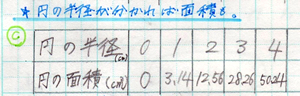 *円の半径が分かれば面積も。
G
円の半径(cm) 0 1 2 3 4
円の面積(cm) 0 3.14 12.56 28.26 50.24